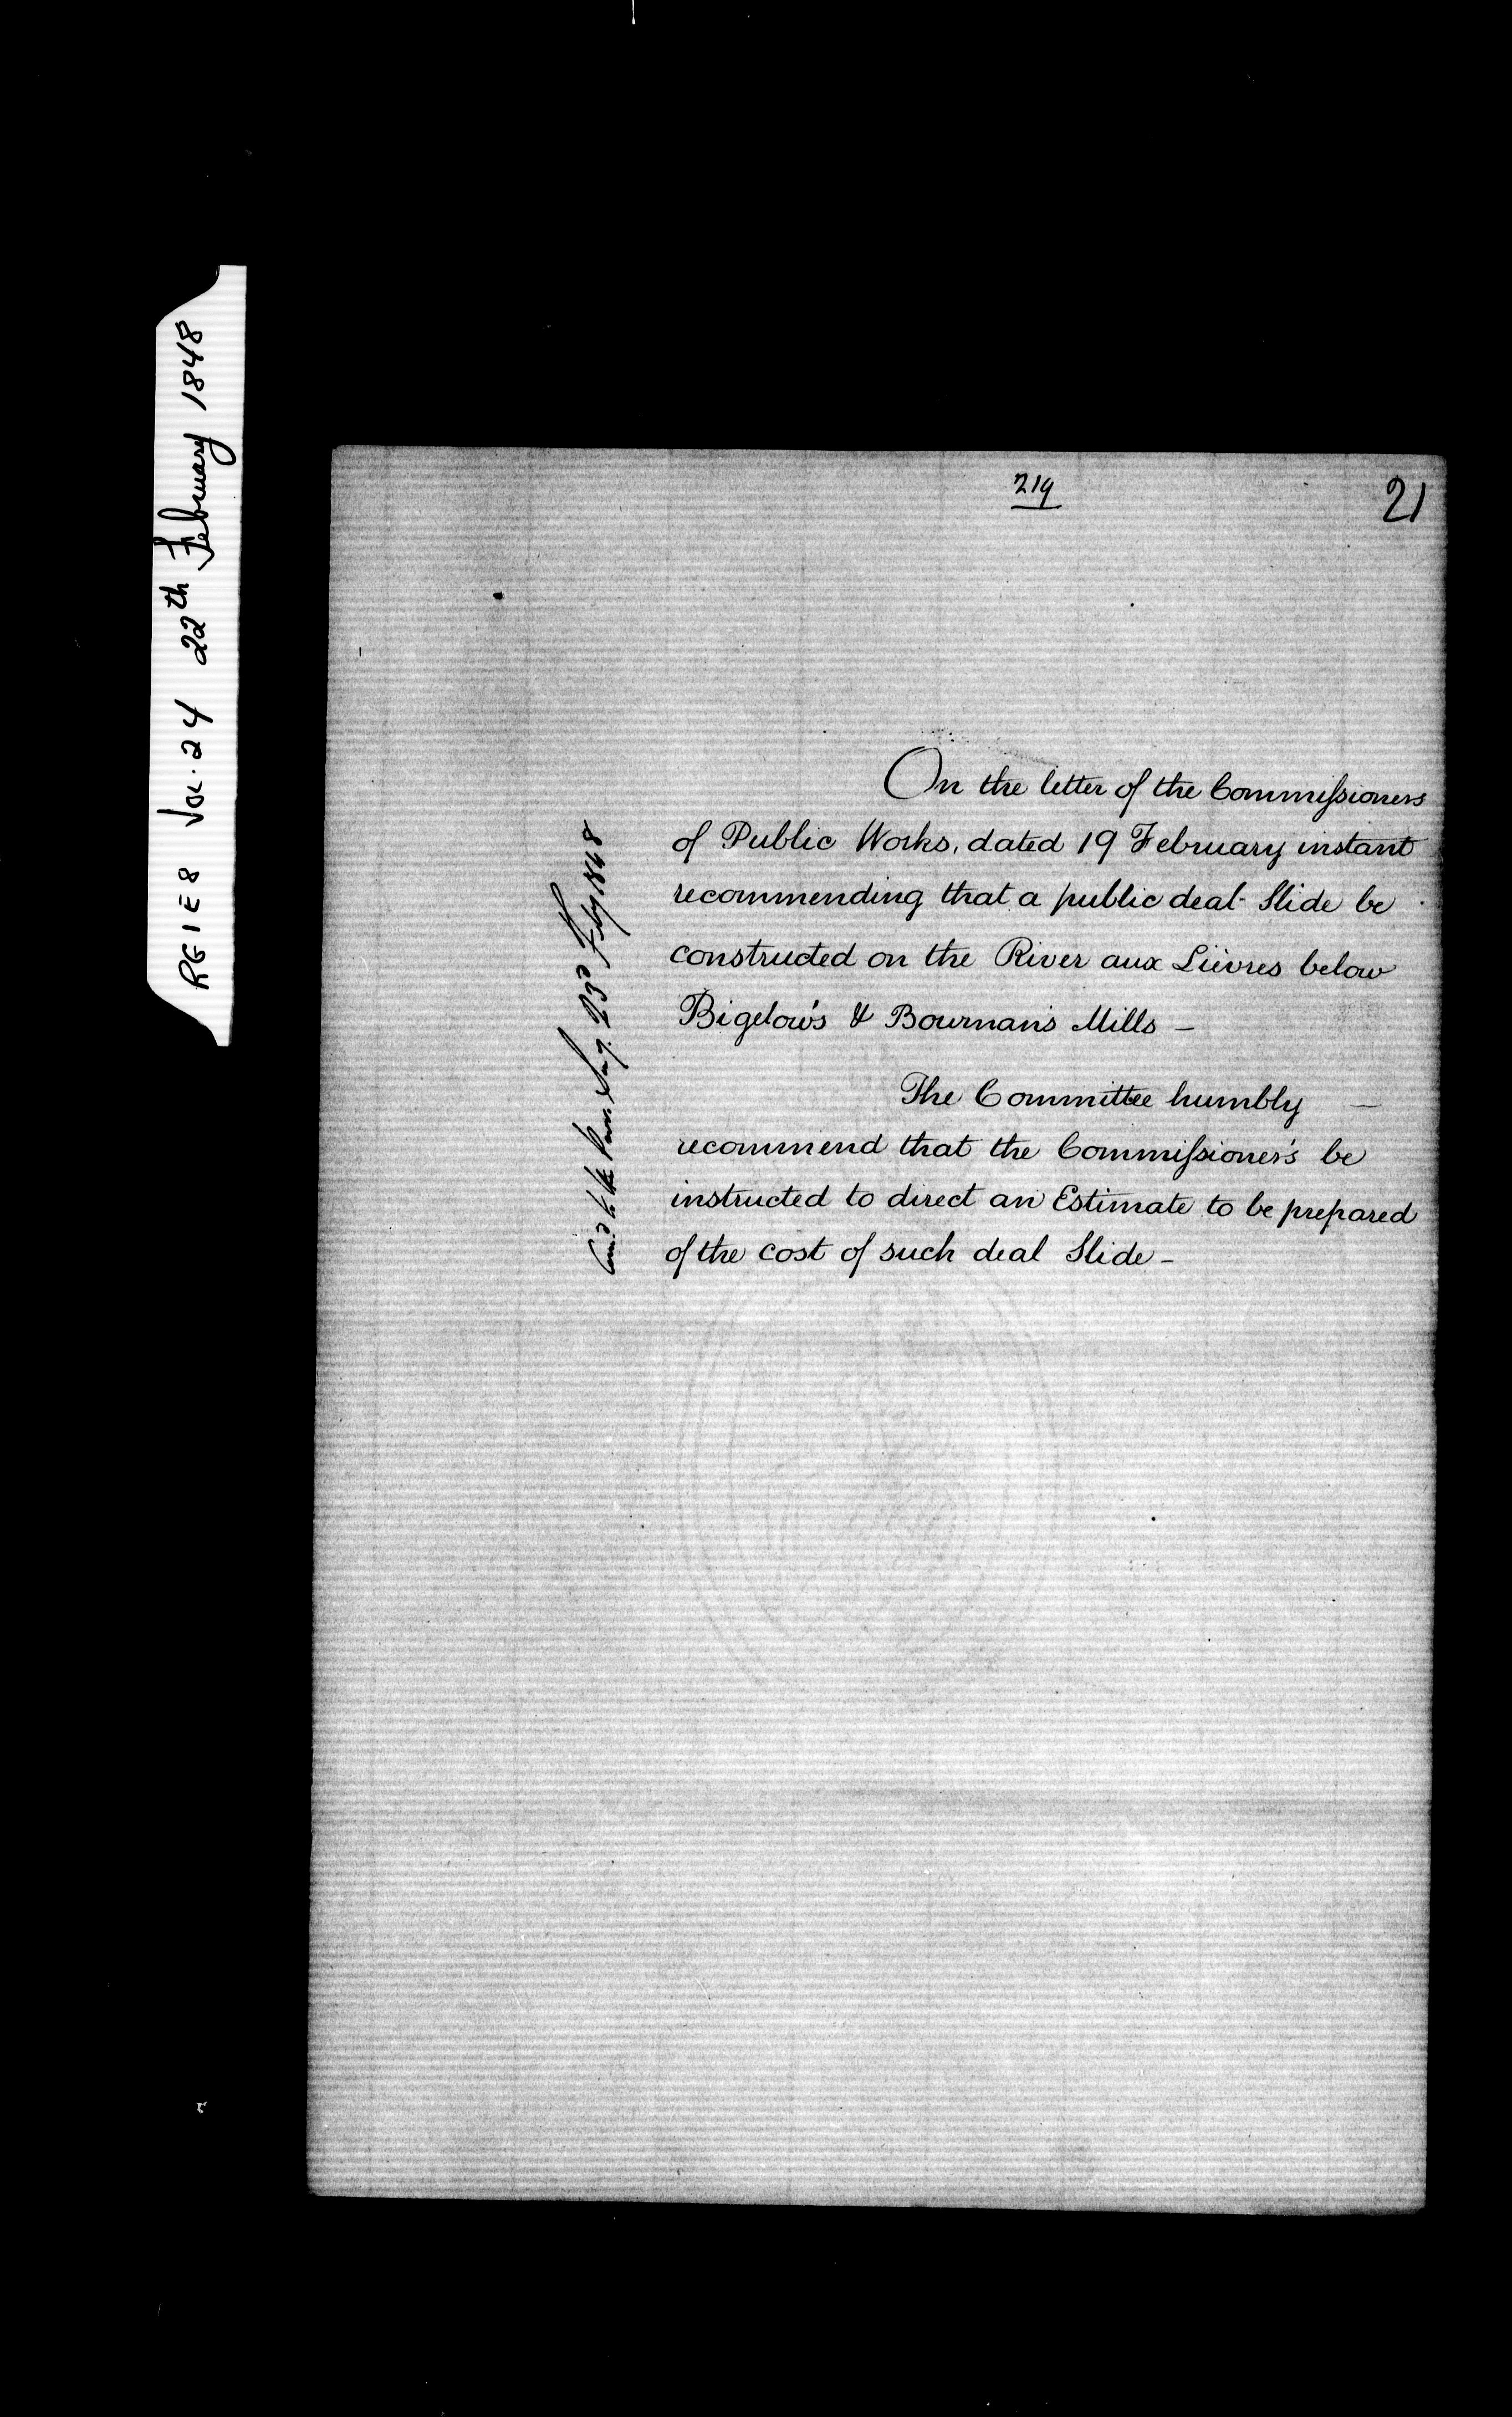 RG 1 E 8 Vol. 24 22th February 1848
219
21
On the letter of the Commissioners
of Public Works, dated 19 February instant
recommending that a public deal Slide be
constructed on the River aux Lièvres below
Bigelow's & Bowman's Mills —
The Committee humbly —
recommend that the Commissioner's be
instructed to direct an Estimate to be prepared
of the cost of such deal Slide —
23d Feby 1848